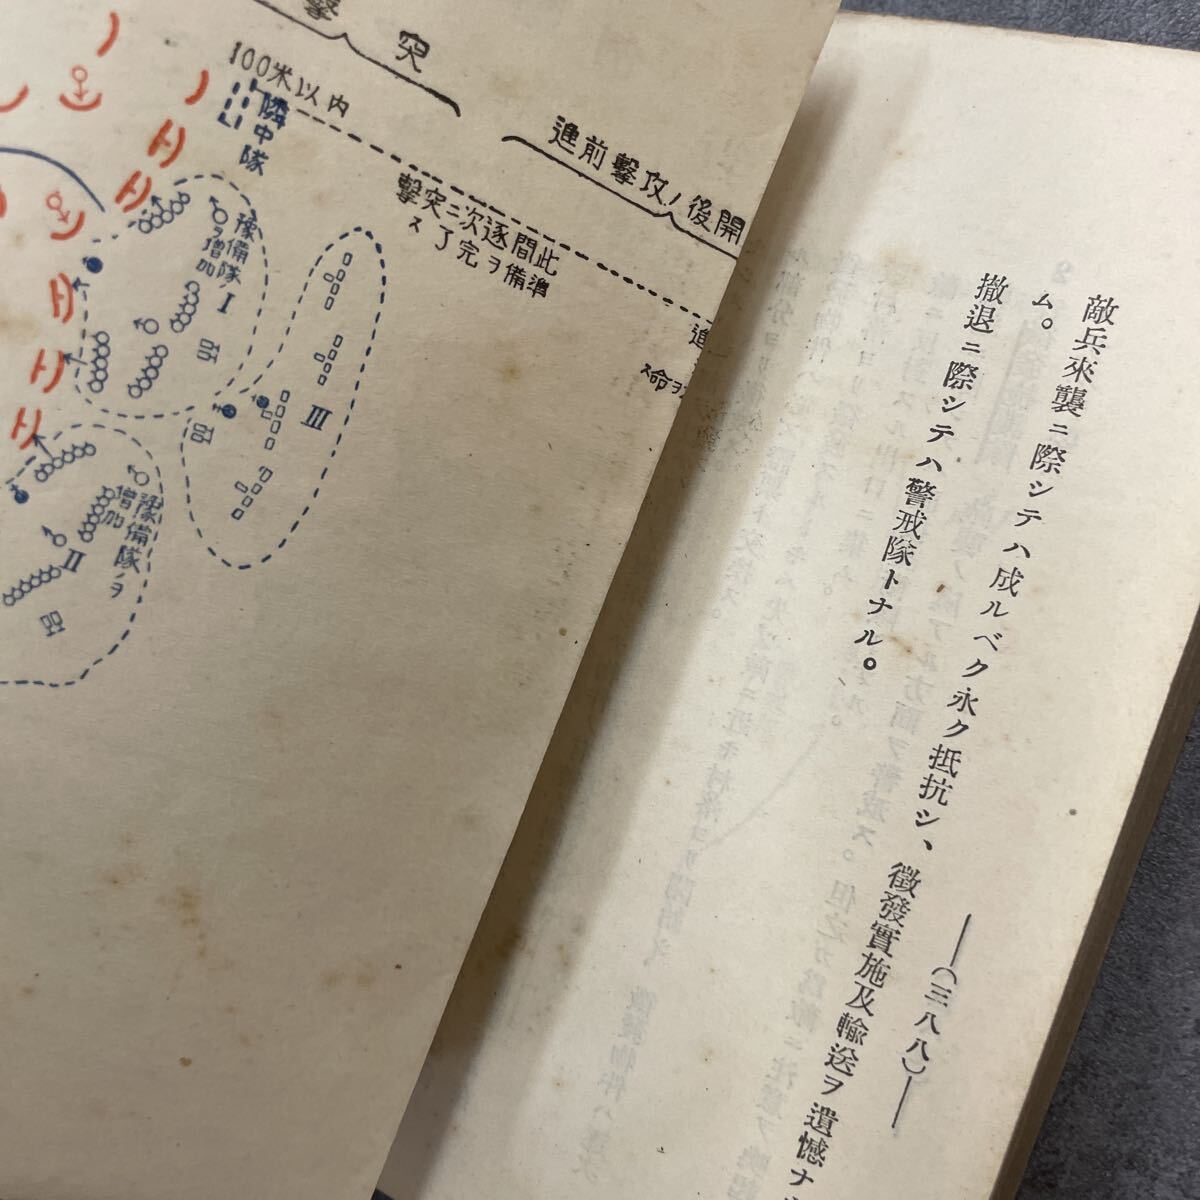 敵兵來襲ニ際シテハ成ルベク永ク抵抗シ、徵發實施及輸送ヲ遺憾ナ
ム。
撤退ニ際シテハ警戒隊トナル。
―(三八八)―
擊突
100米以内
隣中隊
進前擊攻ノ後開
此間逐次ニ突擊
準備ヲ完了ス
進
命ヲ
豫備隊ノ
ヲ增加
I
III
豫備隊ノヲ
增加
II